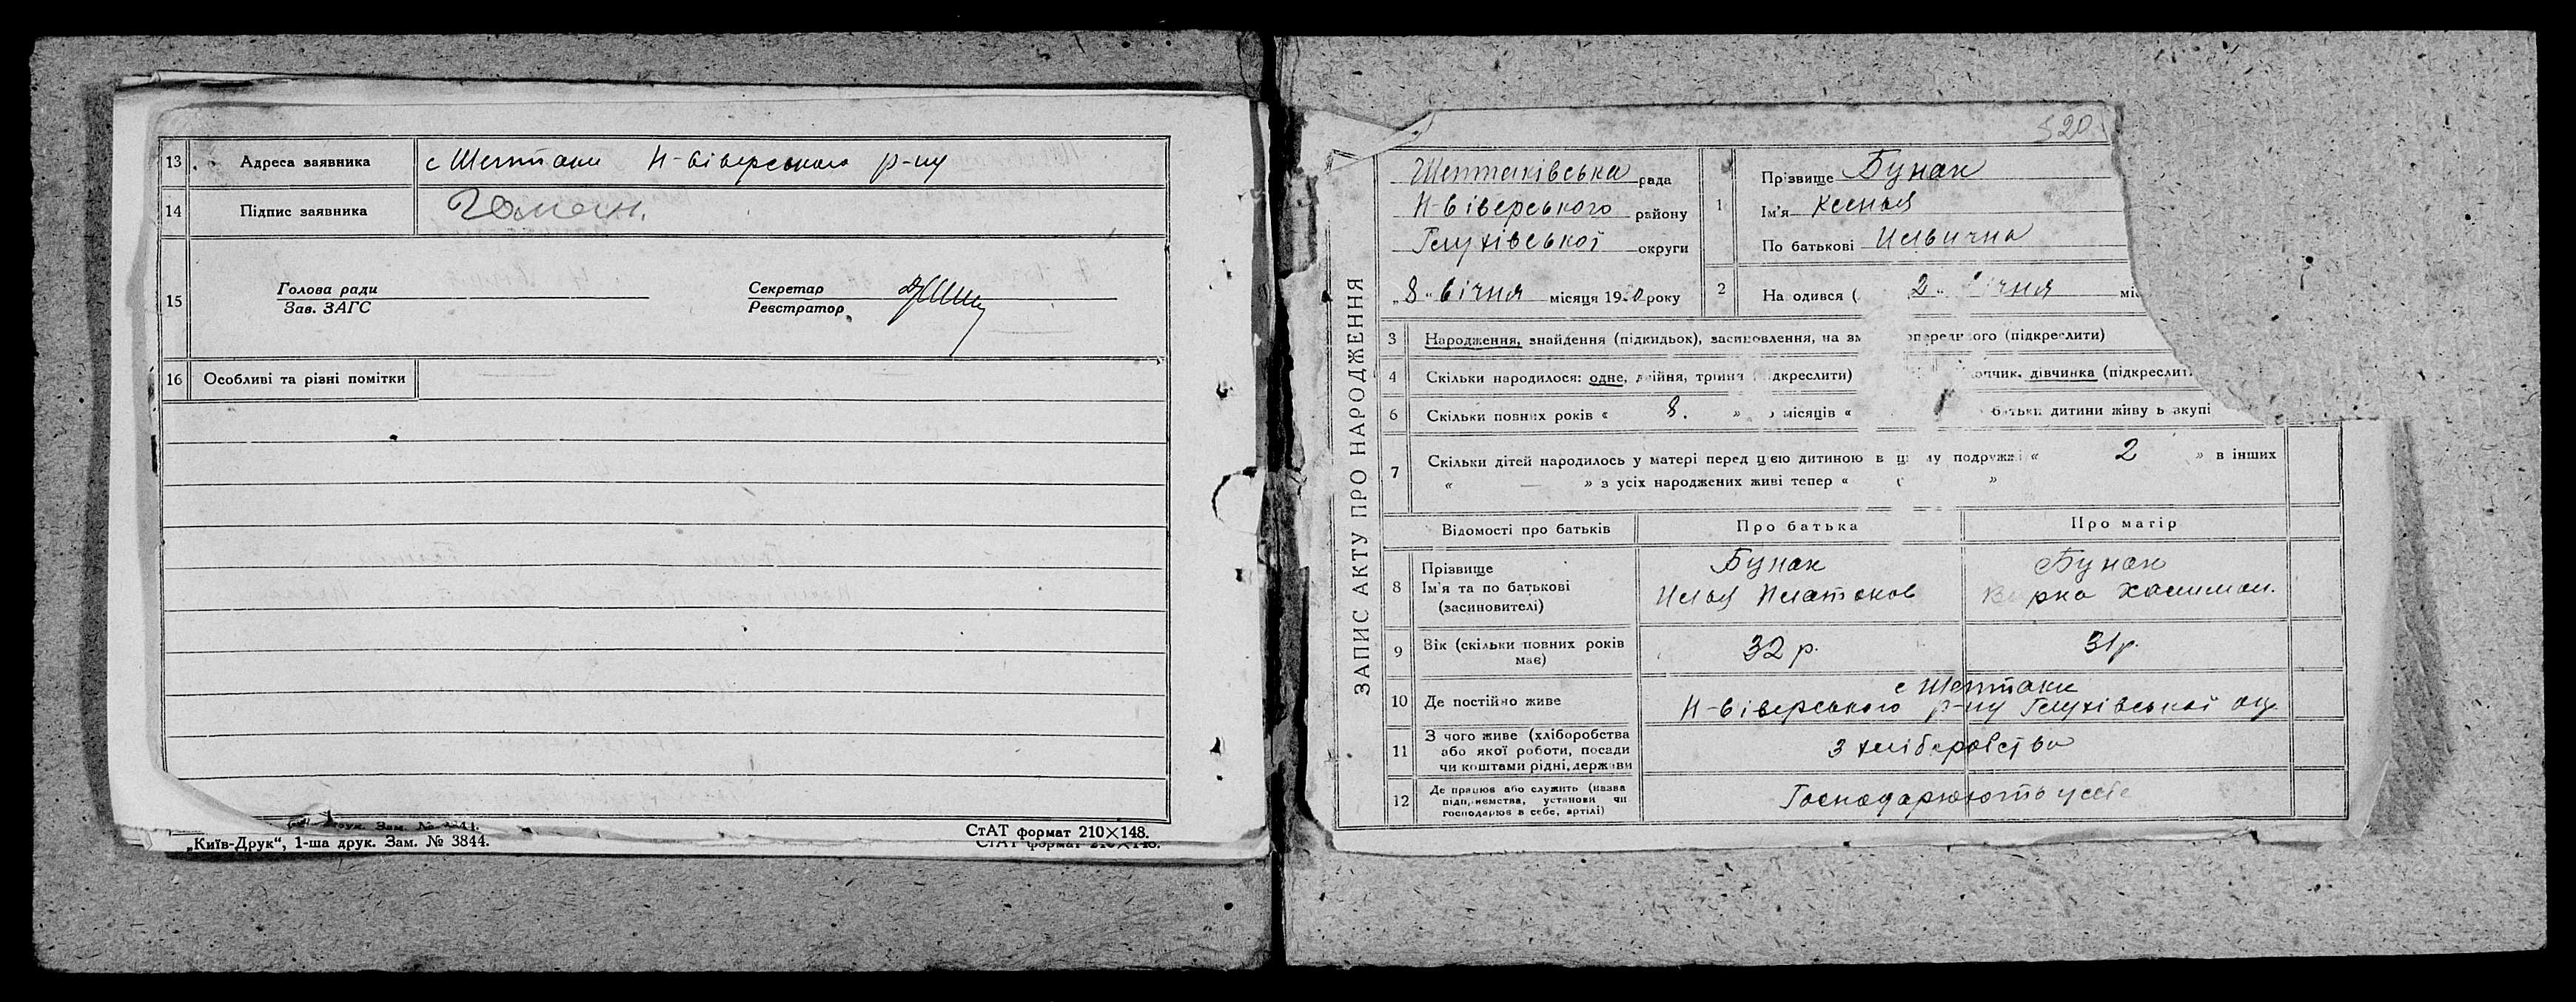 13 Адреса заявника с Шептаки Н-Сіверського р-ну
14 Підпис заявника
15 Голова ради Секретар
Зав. ЗАГС Реєстратор
16 Особливі та різні помітки
„Київ-Друк“, 1-ша друк. Зам. № 3844.
СтАТ формат 210×148.
СтАТ формат 210×148.
320
ЗАПИС АКТУ ПРО НАРОДЖЕННЯ
Шептаківська рада
Н-Сіверського району
Глухівської округи
„8“ Січня місяця 19 0 року
1 Прізвище Бунак
Ім'я Ксенья
По батькові Ильична
2 На одився ( 2 “ ічня міс
3 Народження, знайдення (підкидьок), засиновлення, на зм опереднього (підкреслити)
4 Скільки народилося: одне, двійня, трійня ідкреслити) опчик, дівчинка (підкреслити
6 Скільки повних років « 8. » місяців « батьки дитини живуть вкупі
7 Скільки дітей народилось у матері перед цією дитиною в цьому подружжі « 2 » в інших
« — » з усіх народжених живі тепер « »
Відомості про батьків Про батька Про матір
8 Прізвище Бунак Бунак
Ім'я та по батькові Илья Платонов
(засиновителі)
9 Вік (скільки повних років має) 32 р. 31 р.
10 Де постійно живе с Шептаки
Н-Сіверського р-ну Глухівської окр
11 З чого живе (хліборобства
або якої роботи, посади
чи коштами рідні, держави
З хліборобства
12 Де працює або служить (назва
підприємства, установи чи
господарює в себе, артілі)
Господарюють у себе